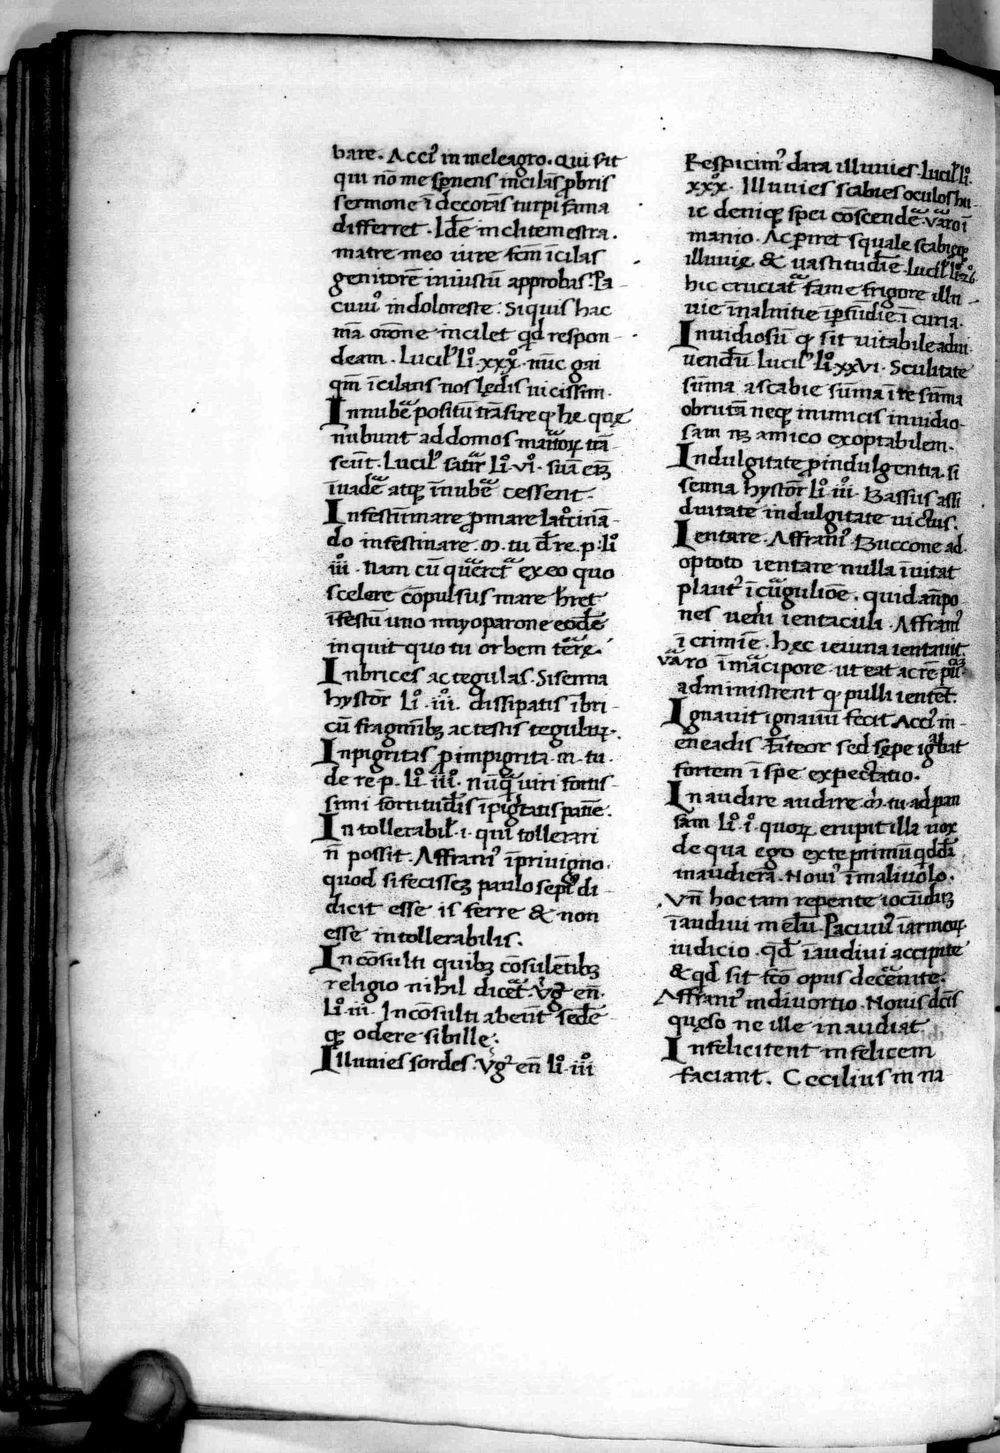 bare. Acci᾽ in meleagro. Qui sit
qui nō me sp̄nens incilās ꝓbris
sermone ī decorās turpi fama
differret. Idē in clitem estra.
matre meo iure fcm īcilas
genitorē iniustū approbas. Pa
cuui᾽ in doloreste. Si quis hac
mā orōne incilet qd respon
deam. Lucil᾽ li° xxx°. nūc gni
qm̄ īcilans nos lędis uicissim.
Innubē positū trāsire q he quę
nubunt ad domos maritoꝝ trā
seūt. Lucil᾽ satir li° vi°. suā eiꝫ
īuadē atqꝫ īnubē cessent.
Infestū mare ꝓ mare latrociniā
do infestinare. M. tu. d̄ re. p. li°
iii°. Nam cū quereret᾽ ex eo quo
scelere cōpulsus mare hret
īfestū uno myoparone eodē
inquit quo tu orbem terrę.
Inbrices ac tegulas. Sisenna
hystor li° iii°. dissipatis ibri
cū fragmībꝫ ac testis tegulaꝝ.
Inpigritas ꝓ impigrita. M. tu.
de re. p. li° iii°. nūq̄ uiri fortis
simi fortitudīs īpigratis pane.
In tollerabil᾽. i. qui tollerari
n̄ possit. Affrani᾽ ī priuigno.
quod si fecissꝫ paulo sepi᾽ di
dicit esse is ferre & non
esse in tollerabilis.
In cōsulti quibꝫ cōsulētibꝫ
religio nihil dicet. Vg᾽ en̄.
li° iii°. Incōsulti abeūt sedē
qꝫ odere sibille.
Illuuies sordes. Vg᾽ en̄ li° iii°
Respicim᾽ dara illuuies. Lucil᾽ li°
xxx°. Illuuies scabies oculos hu
ic deniqꝫ spei cōscendē. Varo ī
manio. Ac ꝓiret squale scabieqꝫ
illuuię & uastitudīe. Lucil᾽ li° 26
hic cruciat᾽ fame frigore illu
uie īnalnitie īꝑfūdie ī curia.
Inuidiosū q sit uitabile ad in
uendū. Lucil᾽ li° xxvi. Sculitate
sūma ascabie sūma ī te sūma
obrutā neqꝫ inimicis inuidio
sam nꝫ amico exoptabilem.
Indulgitate ꝓ indulgentia. si
senna hystor li° iii°. Bassus assi
duitate indulgitate uictus.
Ientare. Affrani᾽ Buccone ad
optoto ientare nulla īuitat
plaut᾽ ī cūgulione. quid an̄ po
nes uehi ientaculi. Affrani᾽
ī crimīe. hęc ieiuna ientauit
Varo īmācipore. ut eat ac rē
administrent q pulli ientēt.
Ignauit ignauū fecit Acci᾽ in
eneadis fateor sed sępe igbat
fortem ī spe expectatio.
In audire audire. M. tu. ad pan
sam li° i° quoꝝ erupit illa uox
de qua ego ex te primū qddā
inaudierā. Noui᾽ ī maliuolo.
Vn̄ hoc tam repente iocūdiꝫ
īaudiui. Pacuui᾽ ī armoꝝ
iudicio. qd īaudiui accipite
& qd sit fcō opus decernite.
Affrani᾽ in diuortio. Nouis dcīs
quęso ne ille in audiat
Infelicitent infelicem
faciant. Cecilius in na